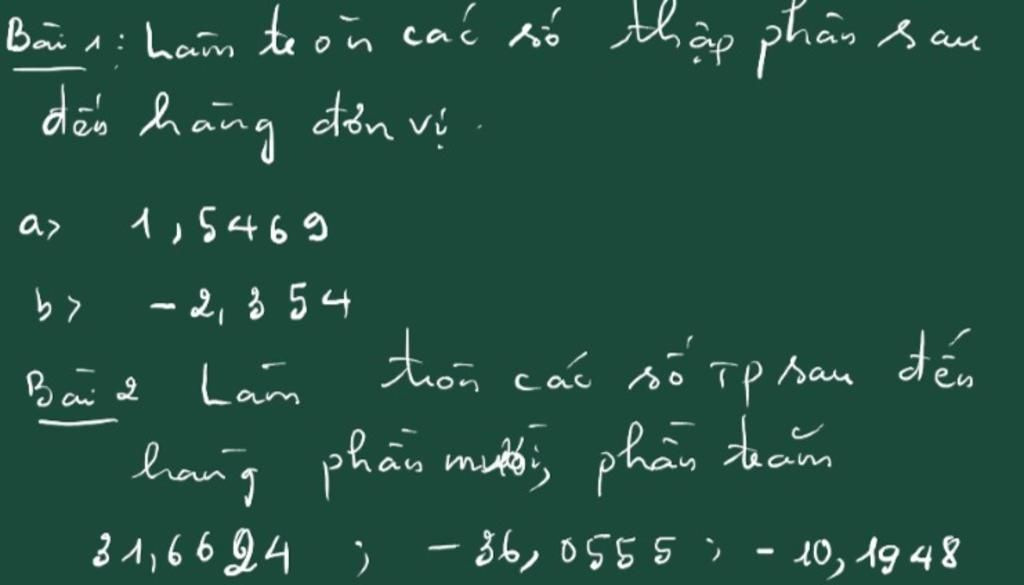 Bài 1: Làm tròn các số thập phân sau
đến hàng đơn vị.
a> 1,5469
b> -2,354
Bài 2 Làm tròn các số TP sau đến
hàng phần mười, phần trăm
31,6624 ; -36,0555 ; -10,1948